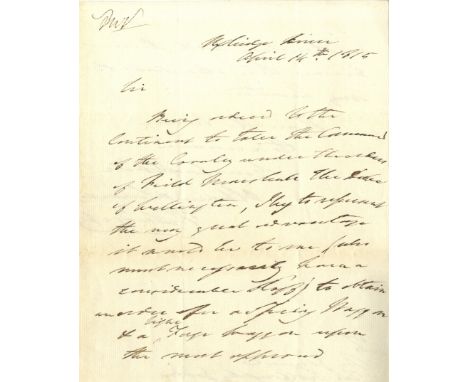 April 14th. 1815
Sir
Being ordered to the
Continent to take the Command
of the Cavalry under the orders
of Field Marshal the Duke
of Wellington, I beg to represent
the very great advantage
it would be to me (who
must necessarily have a
considerable Staff) to obtain
an order for a Spring Waggon
& a light Forge waggon upon
the most approved